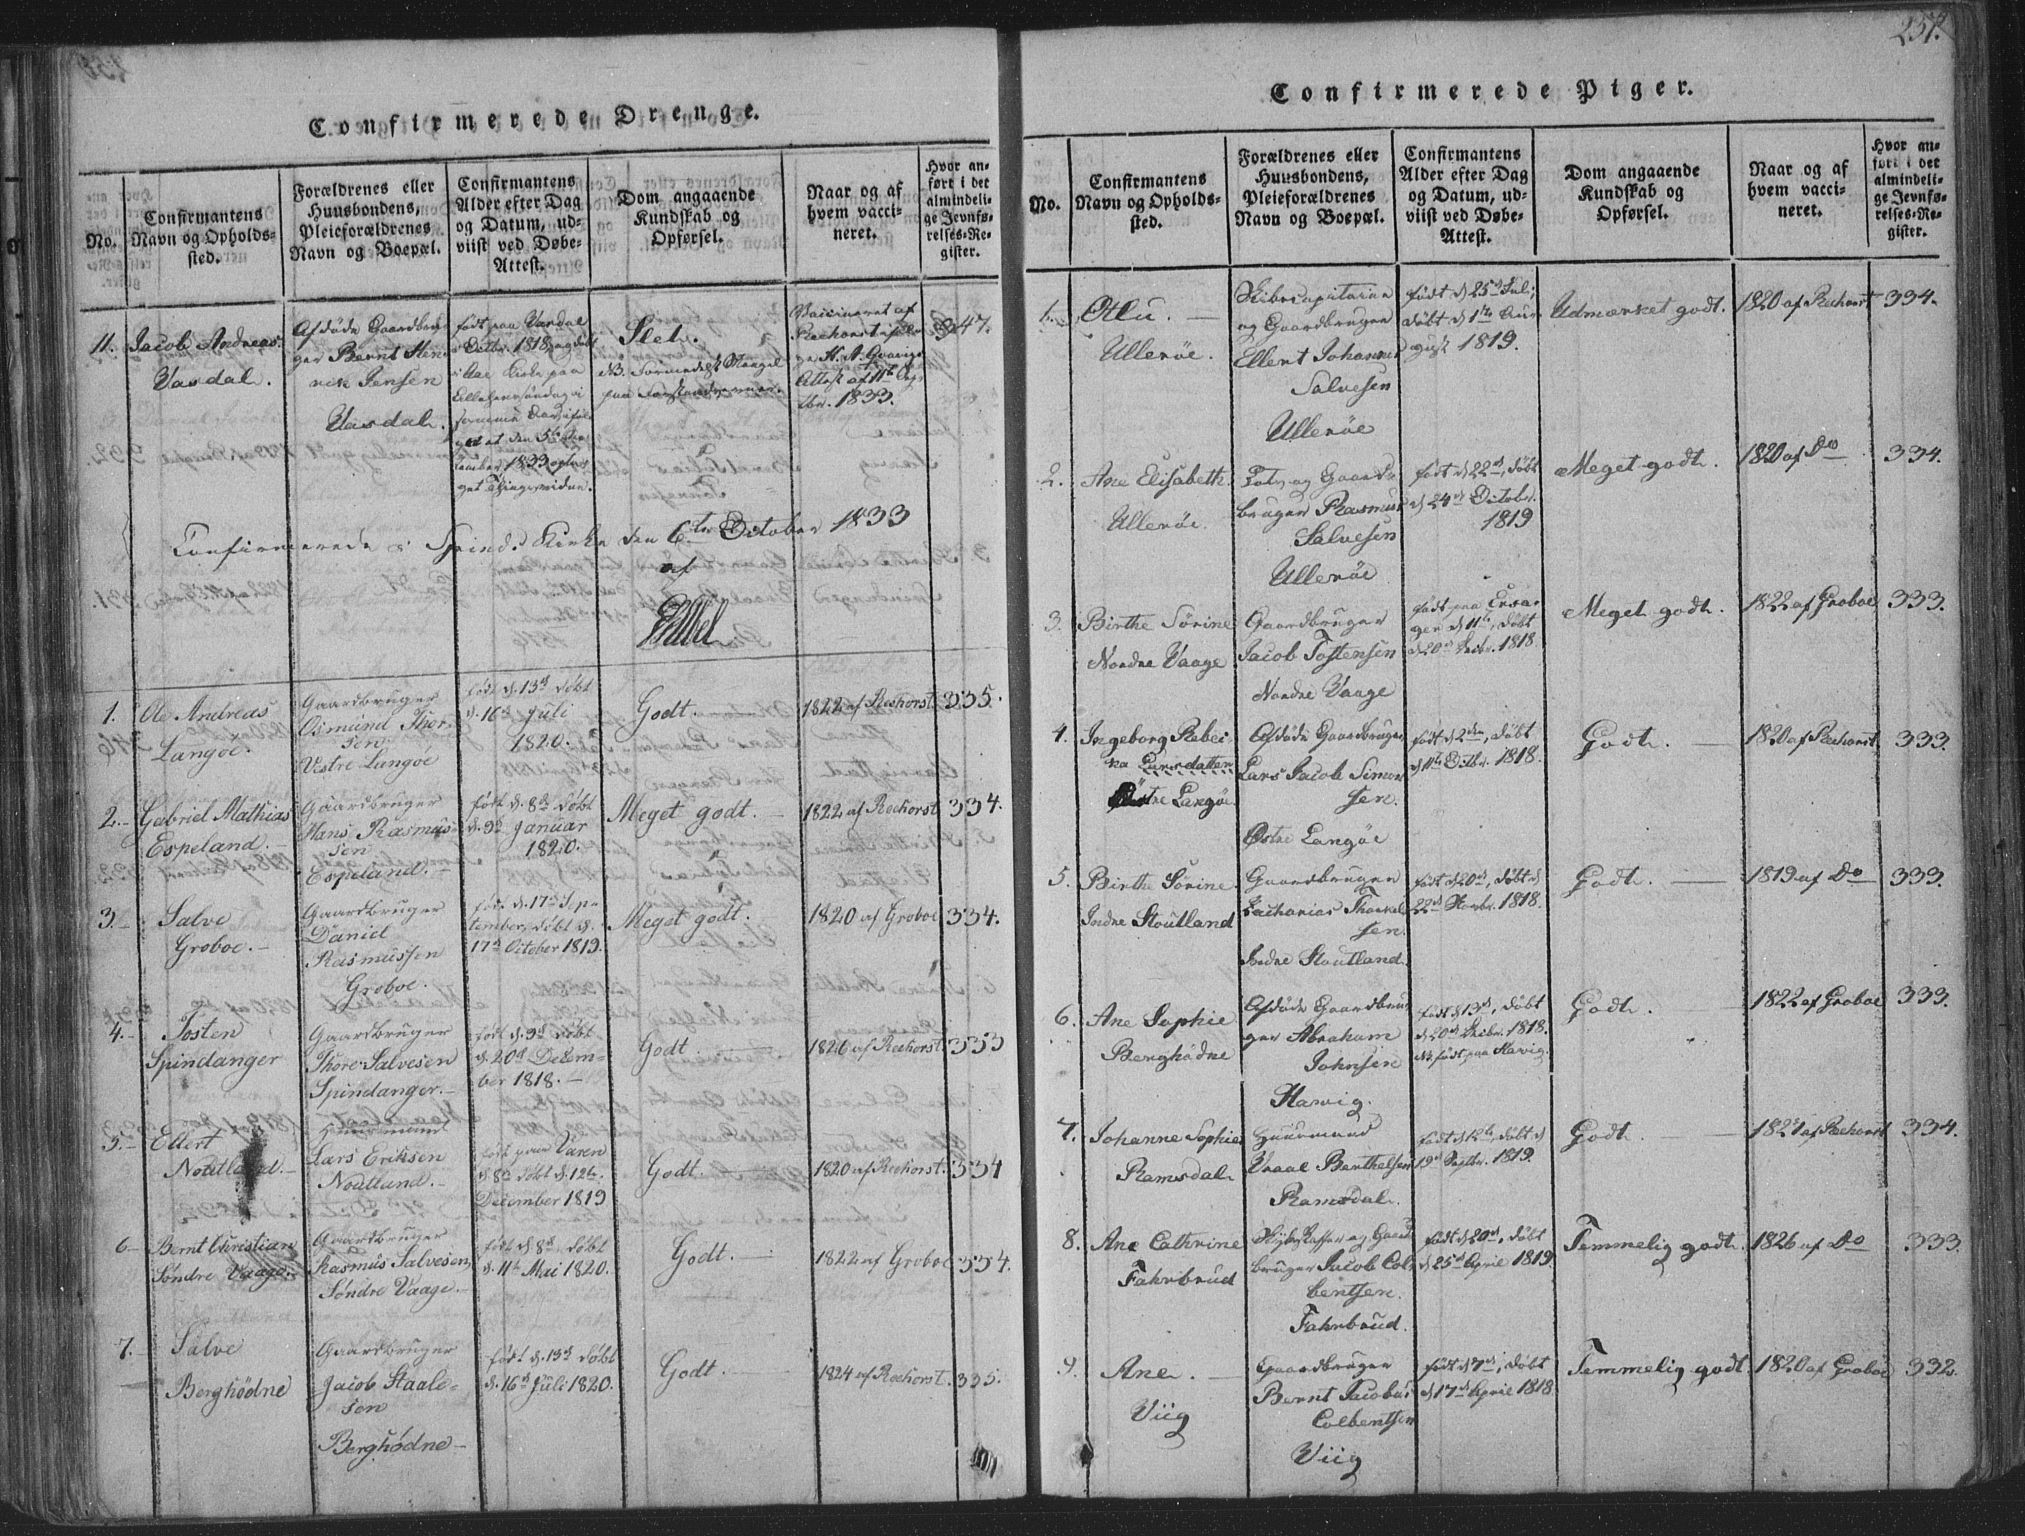 Confirmerede Drenge.
No.
Confirmantens
Navn og Opholds-
sted.
Forældrenes eller
Huusbondens,
Pleieforældrenes
Navn og Boepæl.
Confirmantens
Alder efter Dag
og Datum, ud-
viist ved Døbe-
Attest.
Dom angaaende
Kundskab og
Opførsel.
Naar og af
hvem vacci-
neret.
Hvor an-
ført i det
almindeli-
ge Jevnfø-
relses-Re-
gister.
11.
Jacob Andreas
Vasdal.
Afdøde Gaardbru-
ger Bernt Hen-
rick Jensen
Vasdal.
født paa Vasdal
1818, og døbt
Kirke paa
samme
at den 5te
1833
Slet.
NB. Mangel
paa
Vaccineret af
Reehorst
Attest af 11te
1833.
347.
Confirmerede i Spinds Kirke den 6te October 1833
af
1.
Ole Andreas
Langøe.
Gaardbruger
Osmund Thor-
sen
Vestre Langøe
født d. 13d døbt
d. 16d Juli
1820.
Godt.
1822 af Reehorst
335.
2.
Gabriel Mathias
Espeland.
Gaardbruger
Hans Rasmus-
sen
Espeland.
født d. 8d døbt
d. 9d Januar
1820.
Meget godt.
1822 af Reehorst
334.
3.
Salve
Groboe.
Gaardbruger
Daniel
Rasmussen
Groboe.
født d. 17d Sep-
tember, døbt d.
17d October 1819.
Meget godt.
1820 af Groboe
334.
4.
Tosten
Spindanger
Gaardbruger
Thore Salvesen
Spindanger.
født d. 9d døbt
d. 20d Decem-
ber 1818.
Godt
1826 af Reehorst.
333
5.
Ellert
Noutland.
Huusmand
Lars Eriksen
Noutland.
født paa Varen
d. 8d døbt d. 12te
December 1819
Godt.
1820 af Reehorst.
334
6.
Bernt Christian
Søndre Vaage.
Gaardbruger
Rasmus Salvesen
Søndre Vaage.
født d. 8d døbt
d. 11te Mai 1820.
Godt.
1822 af Groboe
334.
7.
Salve
Berghødne
Gaardbruger
Jacob Staale-
sen
Berghødne
født d. 13d døbt
d. 16d Juli 1820.
Godt.
1824 af Reehorst.
335.
257.
Confirmerede Piger.
No.
Confirmantens
Navn og Opholds-
sted.
Forældrenes eller
Huusbondens,
Pleieforældrenes
Navn og Boepæl.
Confirmantens
Alder efter Dag
og Datum, ud-
viist ved Døbe-
Attest.
Dom angaaende
Kundskab og
Opførsel.
Naar og af
hvem vacci-
neret.
Hvor an-
ført i det
almindeli-
ge Jevnfø-
relses-Re-
gister.
1.
Otlu.
Ullerøe.
Skibscapitaine
og Gaardbruger
Ellert Johannes
Salvesen
Ullerøe
født d 25d Juli;
døbt d 1te Au-
gust 1819.
Udmærket godt.
1820 af Reehorst
334.
2.
Ane Elisabeth
Ullerøe.
Lots og Gaard-
bruger Rasmus
Salvesen
Ullerøe
født d 22d, døbt
d 24d Octobr.
1819
Meget godt.
1820 af Do
334.
3.
Birthe Sørine
Nordre Vaage
Gaardbruger
Jacob Tostensen
Nordre Vaage
født paa
d 11te, døbt
d 20d Decbr. 1818.
Meget godt.
1822 af Groboe
333.
4.
Ingeborg Rebec-
ka Larsdatter
Østre Langøe.
Afdøde Gaardbruger
Lars Jacob Simon-
sen.
Østre Langøe
født d 2den, døbt
d 11te Octbr. 1818.
Godt.
1820 af Reehorst
333.
5.
Birthe Sørine
Indre Stoutland
Gaardbruger
Zacharias Thorkel-
sen.
Indre Stoutland.
født d 20d, døbt d
22d Novbr. 1818.
Godt.
1819 af Do
333.
6.
Ane Sophie
Berghødne
Afdøde Gaardbru-
ger Abraham
Johnsen
Harvig.
født d 13d, døbt
d 20d Decbr. 1818.
NB født paa Harvig.
Godt.
1822 af Groboe
333.
7.
Johanne Sophie
Ramsdal
Huusmand
Vraal Berthelsen
Ramsdal.
født d 12te, døbt d
19d Septbr. 1819.
Godt.
1827 af Reehorst
334.
8.
Ane Cathrine
Fahrbrud
og Gaard-
bruger Jacob Col-
bentsen.
Fahrbrud.
født d 20d, døbt
d 25d April 1819
Temmelig godt.
1826 af Do
333.
9.
Ane.
Viig
Gaardbruger
Bernt Jacobus
Colbentsen
Viig
født d 7d, døbt
d 17d April 1818.
Temmelig godt
1820 af Groboe
332.